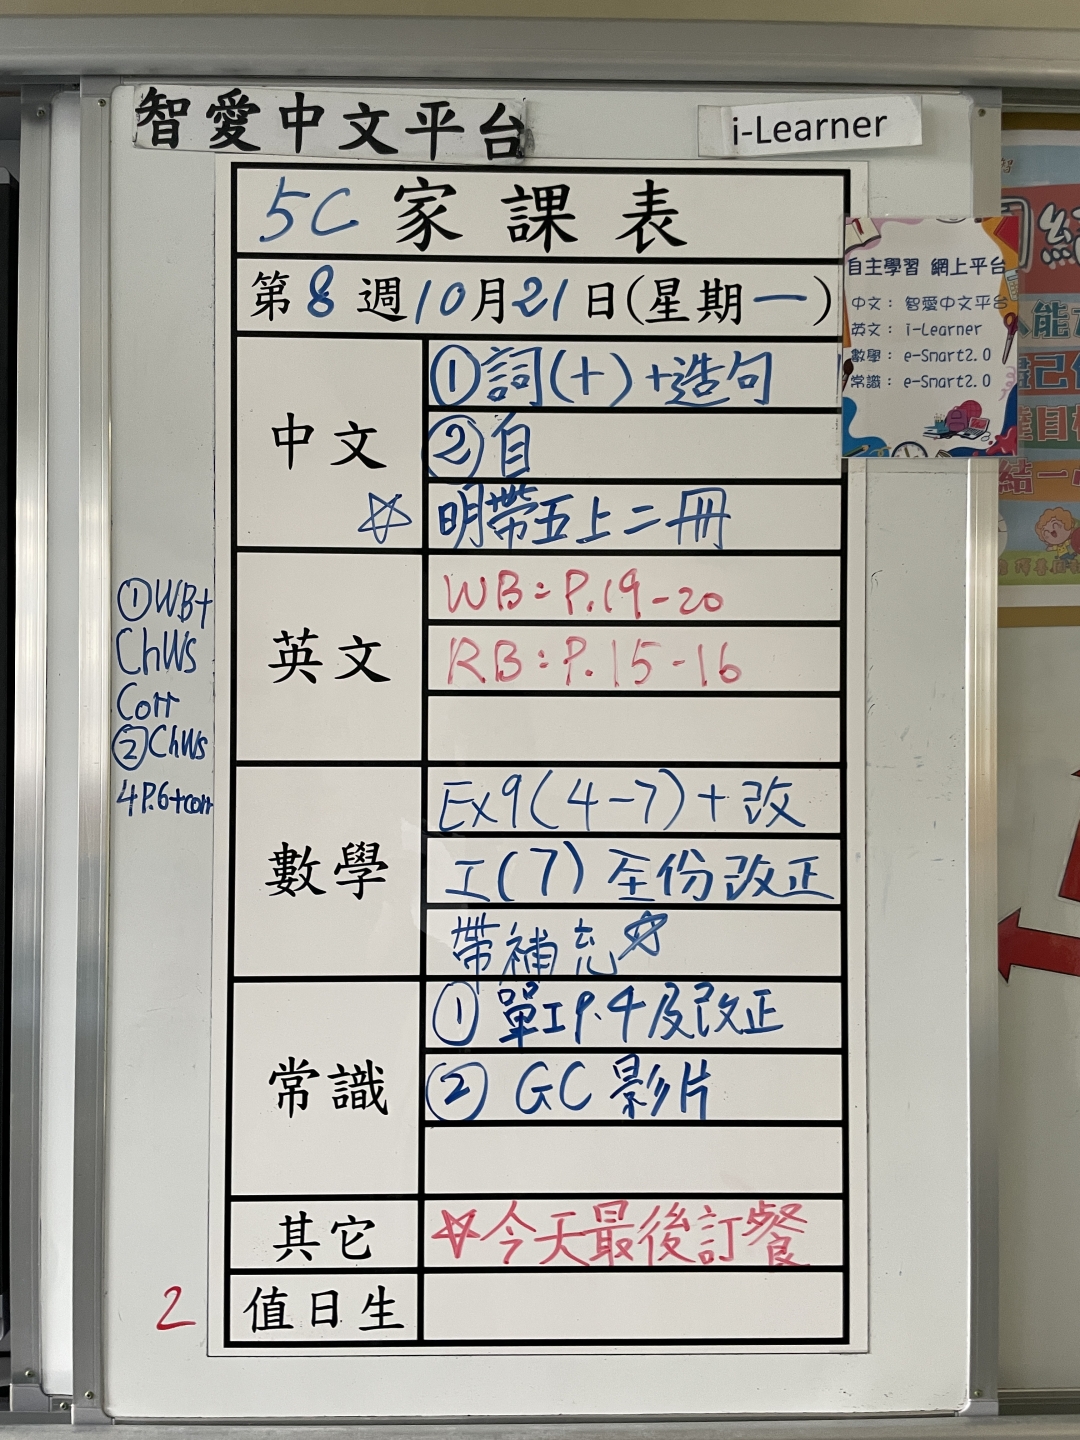 智愛中文平台
i-Learner
5C 家課表
第8週10月21日(星期一)
自主學習 網上平台
中文：智愛中文平台
英文：i-Learner
數學：e-Smart2.0
常識：e-Smart2.0
中文
①詞(十)+造句
②自
☆明帶五上二冊
①WB+
ChWs
Corr
②ChWs
4P.6+corr
英文
WB:P.19-20
RB:P.15-16
數學
Ex9(4-7)+改
工(7)全份改正
帶補充☆
常識
①單工P.4及改正
②GC影片
其它
☆今天最後訂餐
2
值日生